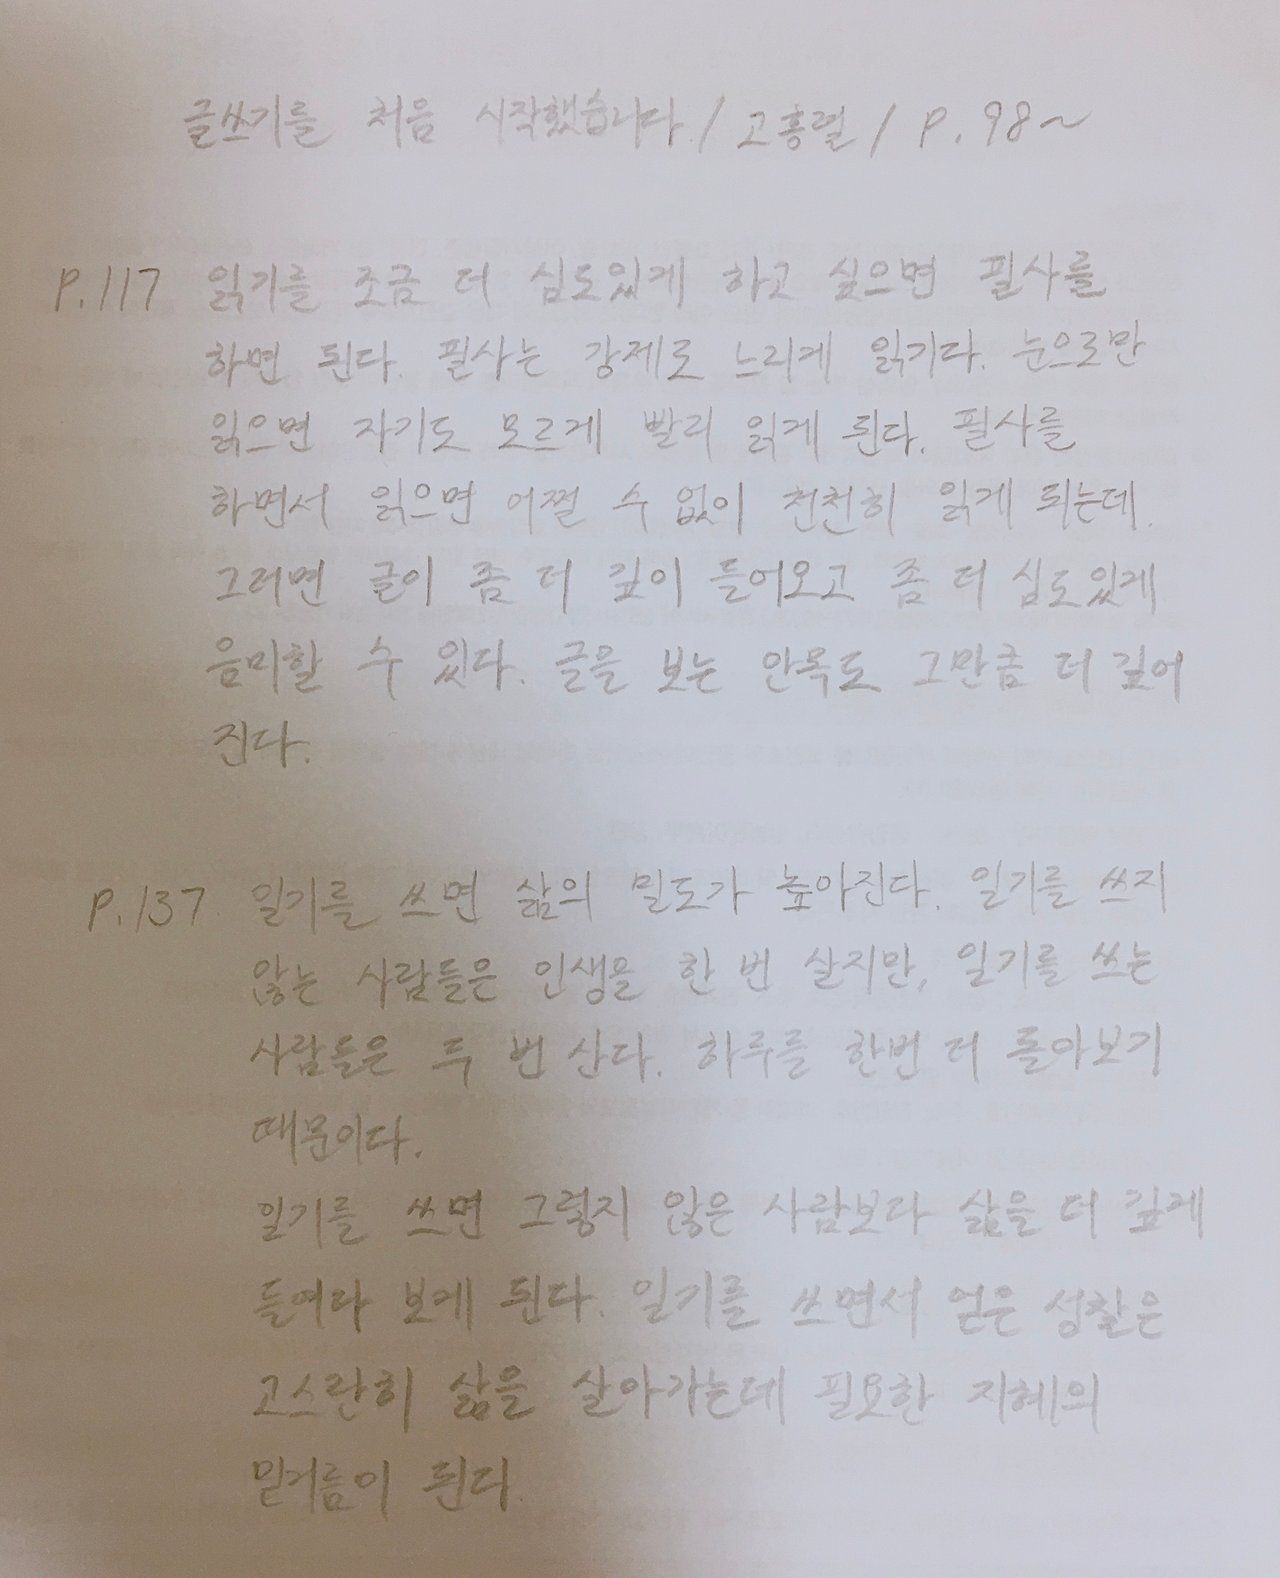 글쓰기를 처음 시작했습니다 / 고흥렬 / P. 98~
P.117 읽기를 조금 더 심도있게 하고 싶으면 필사를
하면 된다. 필사는 강제로 느리게 읽기다. 눈으로만
읽으면 자기도 모르게 빨리 읽게 된다. 필사를
하면서 읽으면 어쩔 수 없이 천천히 읽게 되는데.
그러면 글이 좀 더 깊이 들어오고 좀 더 심도있게
음미할 수 있다. 글을 보는 안목도 그만큼 더 깊어
진다.
P.137 일기를 쓰면 삶의 밀도가 높아진다. 일기를 쓰지
않는 사람들은 인생을 한 번 살지만, 일기를 쓰는
사람들은 두 번 산다. 하루를 한번 더 돌아보기
때문이다.
일기를 쓰면 그렇지 않은 사람보다 삶을 더 깊게
들여다 보게 된다. 일기를 쓰면서 얻은 성찰은
고스란히 삶을 살아가는데 필요한 지혜의
밑거름이 된다